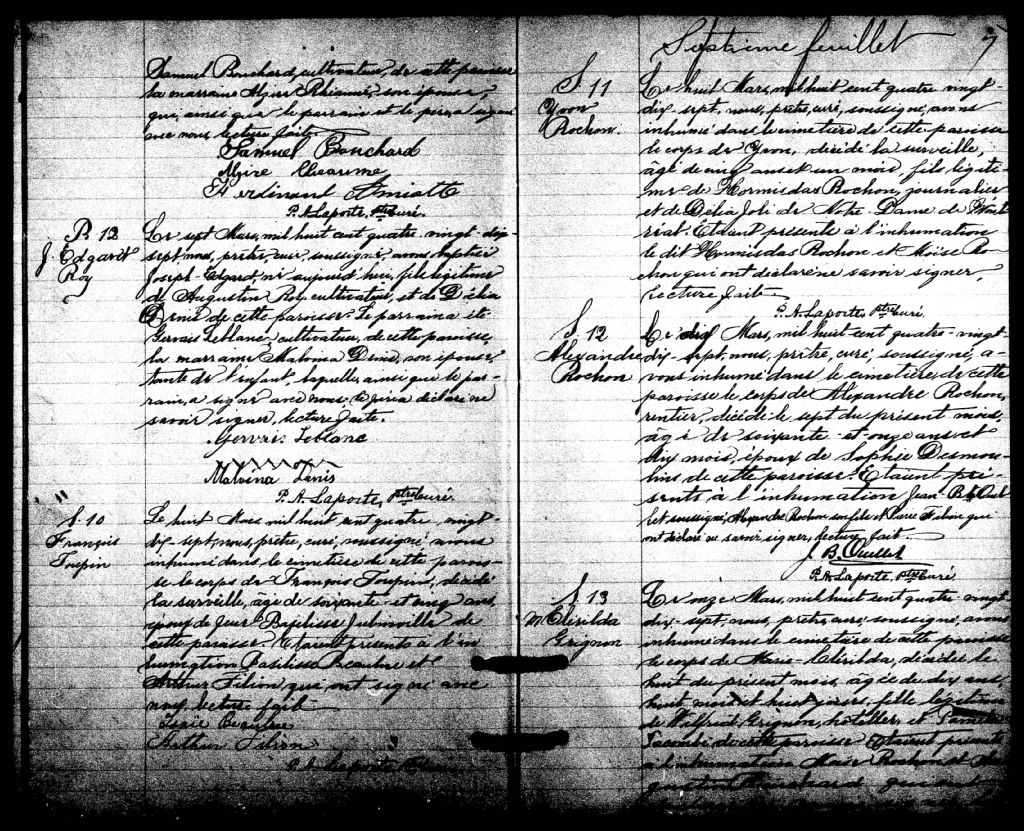 Samuel Bouchard, cultivateur, de cette paroisse
la marraine son épouse,
que, ainsi que le parrain et le père, a signé
avec nous lecture faite.
Samuel Bouchard
Ferdinant Amiott
P. A. Laporte, ptre curé.
B. 12
J. Edgard
Roy
Le sept Mars, mil huit cent quatre vingt dix
sept, nous, prêtre, curé, soussigné, avons baptisé
Joseph-Edgard, né aujourd'hui, fils légitime
de Augustin Roy, cultivateur, et de Délia
Denis de cette paroisse. Le parrain a été
Gervais Leblanc cultivateur, de cette paroisse,
la marraine Malvina Denis, son épouse,
tante de l'enfant, laquelle, ainsi que le par-
rain, a signé avec nous le père a déclaré ne
savoir signer, lecture faite.
Gervais Leblanc
Malvina Denis
P. A. Laporte, ptre curé.
S. 10
François
Toupin
Le huit Mars mil huit cent quatre vingt-
dix-sept, nous, prêtre, curé, soussigné avons
inhumé dans le cimetière de cette parois-
se le corps de François Toupin, décédé
la surveille, âgé de soixante-et-cinq ans,
époux de Jean-Baptiste Jubinville de
cette paroisse. Etaient présents à l'in
humation Basilisse Beaulne et
Arthur Filion, qui ont signé avec
nous lecture faite
Arthur Filion
P. A. Laporte
Septième feuillet
7
S 11
Yvon
Rochon.
Le huit Mars, mil huit cent quatre vingt-
dix sept, nous, prêtre, curé, soussigné, avons
inhumé dans le cimetière de cette paroisse
le corps de Yvon, décédé la surveille,
âgé de cinq ans et un mois, fils légiti-
me de Hormisdas Rochon, journalier
et de Délia Joli de Notre-Dame de Mont
réal. Etaient présents à l'inhumation
le dit Hormisdas Rochon et Moïse Ro-
chon qui ont déclaré ne savoir signer,
lecture faite
P. A. Laporte, ptre curé.
S 12
Alexandre
Rochon
Le dix Mars, mil huit cent quatre-vingt
dix-sept, nous, prêtre, curé, soussigné, a-
vons inhumé dans le cimetière de cette
paroisse le corps de Alexandre Rochon,
rentier, décédé le sept du présent mois,
âgé de soixante-et-onze ans et
dix mois, époux de Sophie Desmou-
lins de cette paroisse. Etaient pré-
sents à l'inhumation Jean-Bte Ouel
let soussigné, Alexandre Rochon son fils et Pierre Filion qui
ont déclaré ne savoir signer, lecture fait.
J. B. Ouellet
P. A. Laporte, ptre curé
S 13
M Clérilda
Grignon
Le onze Mars, mil huit cent quatre-vingt
dix-sept, nous, prêtre, curé, soussigné, avons
inhumé dans le cimetière de cette paroisse
le corps de Marie-Clérilda, décédée le
huit du présent mois, âgée de dix ans,
huit mois et huit jours, fille légitime
de Wilfrid Grignon, hôtellier, et
Lacombe de cette paroisse Etaient présents
à l'inhumation Moïse Rochon et